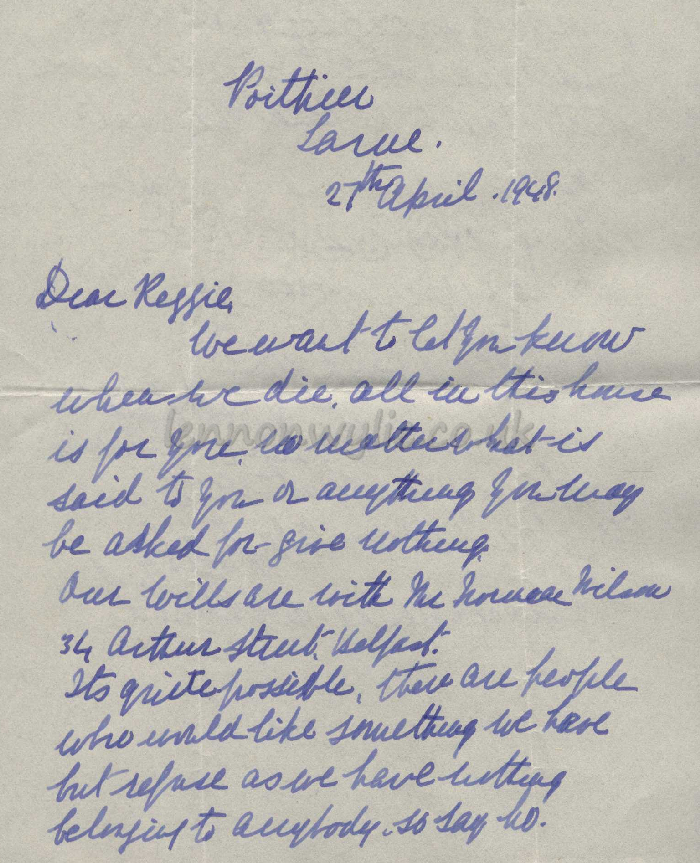 Larne.
27th April. 1948.
Dear Reggie,
We want to let you know
when we die, all in this house
is for you, no matter what is
lennonwylie.co.uk
said to you or anything you may
be asked for give nothing.
Our Wills are with Mr Norman Wilson
34 Arthur Street, Belfast.
Its quite possible, there are people
who would like something we have
but refuse as we have nothing
belonging to anybody. so say no.